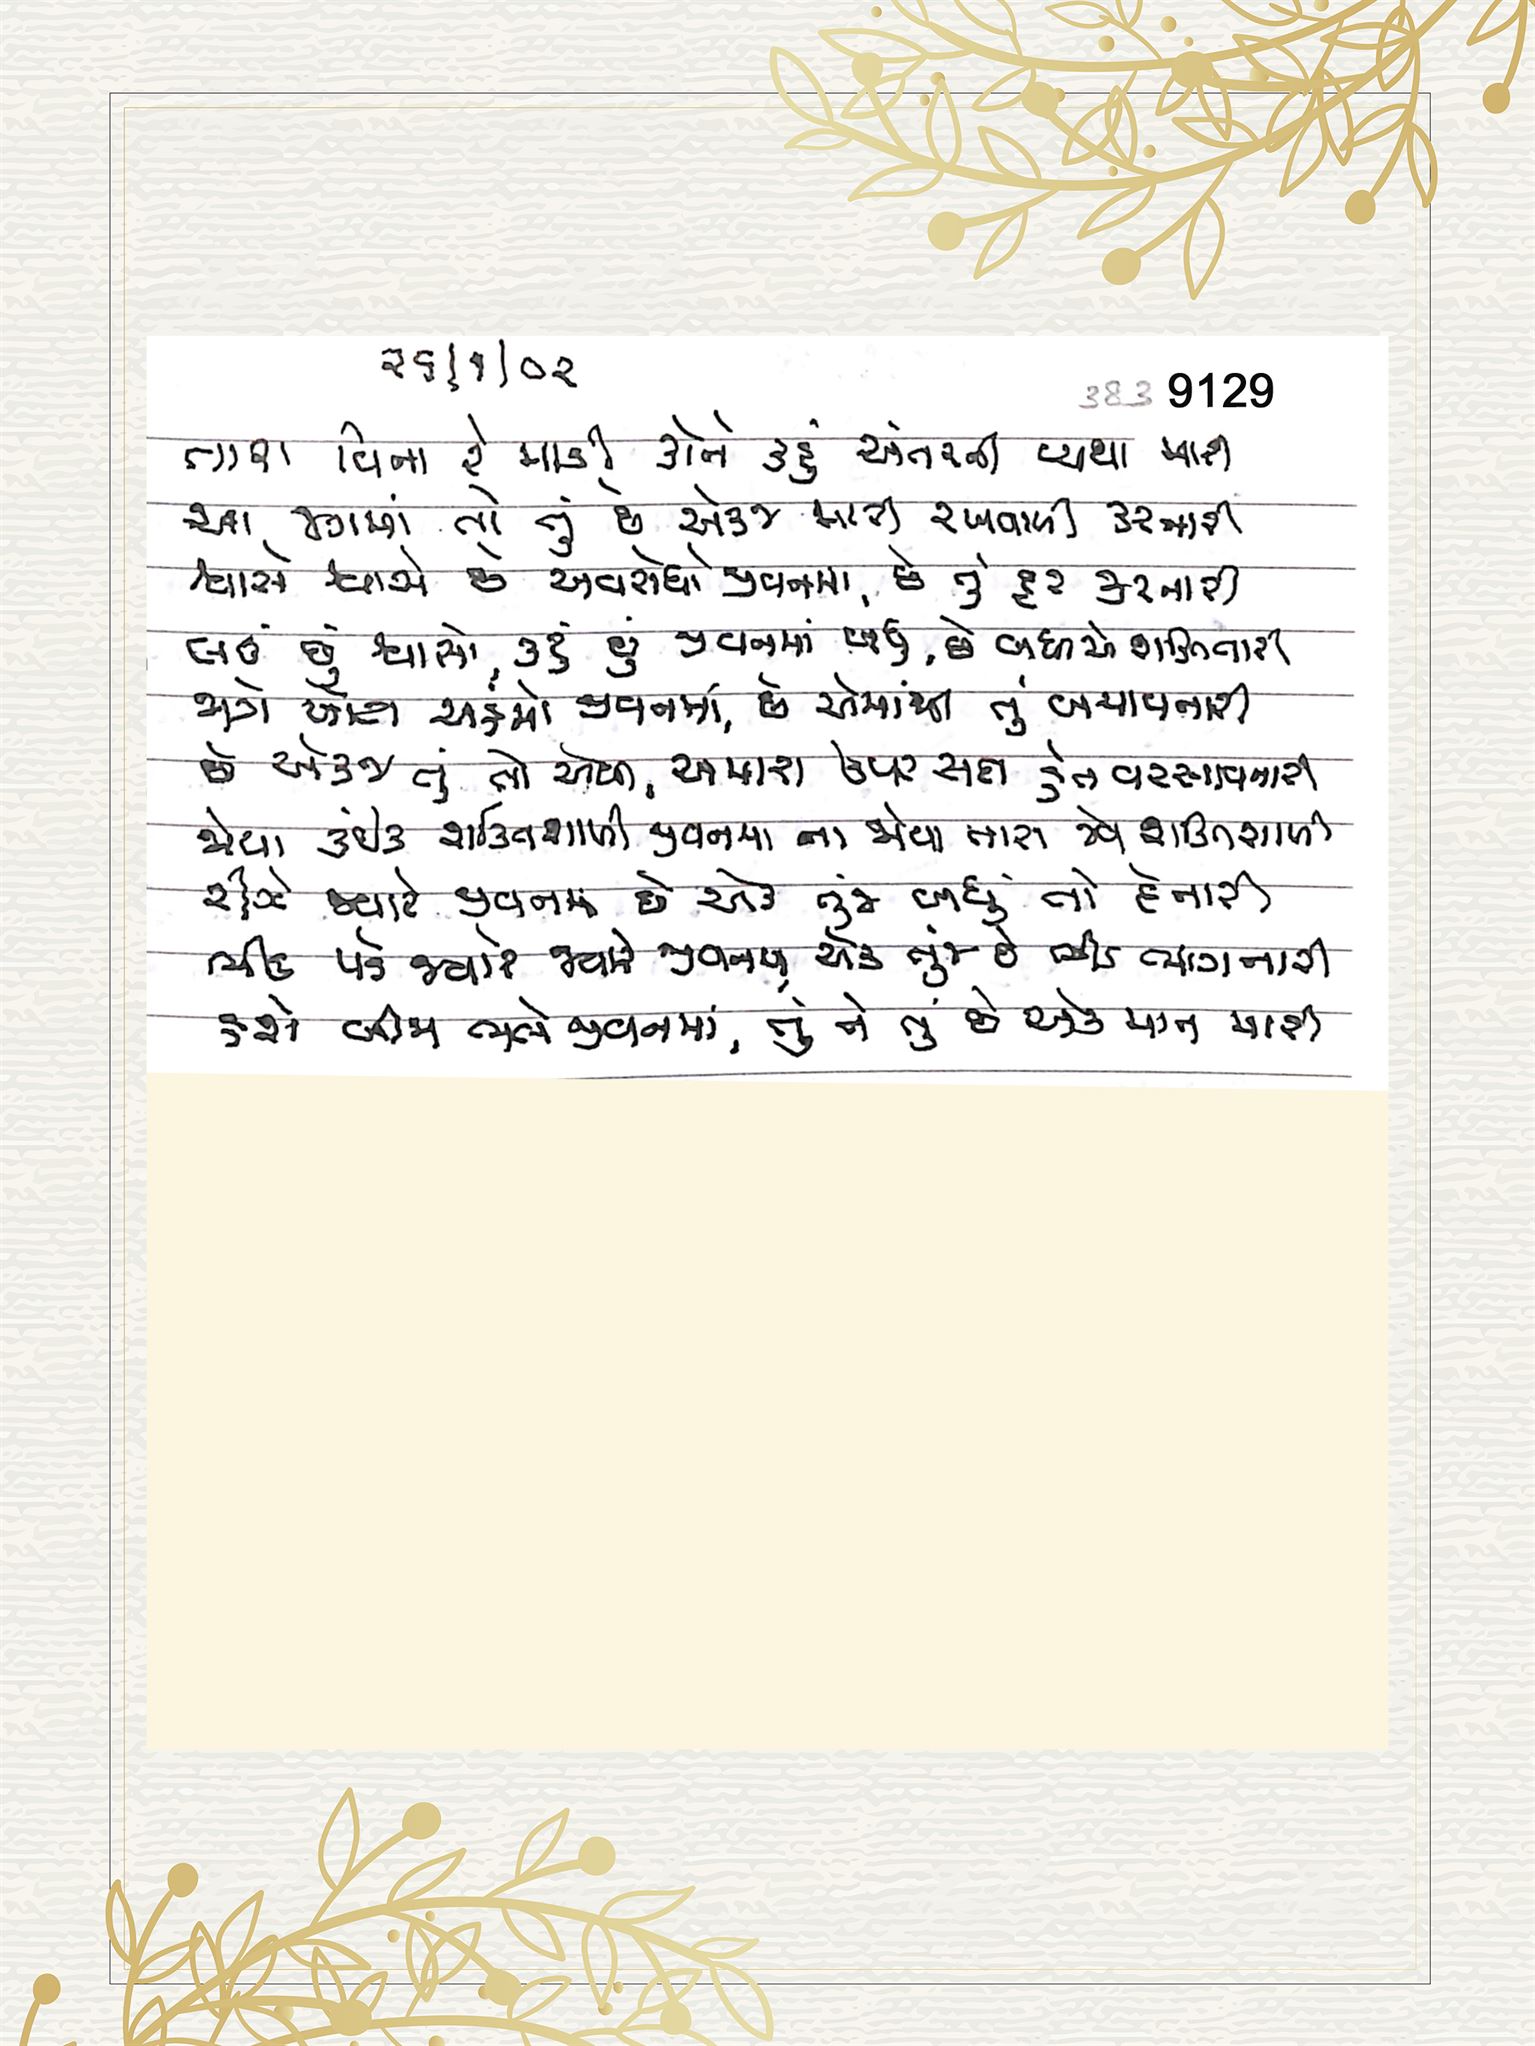 ૨૬/૧/૦૨
383 9129
તારા વિના રે માડી કોને કહું અંતરની વ્યથા મારી
આ જગમાં તો તું છે એકજ મારી રખવાળી કરનારી
શ્વાસે શ્વાસે છે અવરોધો જીવનમા, છે તું દૂર કરનારી
લઉં છું શ્વાસો, કરું છું જીવનમાં બધું, છે બધીએ શક્તિ તારી
જાગે ખોટા જીવનમાં, છે એમાંથી તું બચાવનારી
છે એકજ તું તો એવી, અમારા ઉપર સદા હેત વરસાવનારી
જોયા કંઈક શક્તિશાળી જીવનમા ના જોયા તારા જેવા શક્તિશાળી
રીઝે જ્યારે જીવનમાં છે એક તુંજ બધું તો દેનારી
ભીડ પડે જ્યારે જ્યારે જીવનમાં, એક તુંજ છે ભીડ ભાંગનારી
કરશો ભલે જીવનમાં, તું ને તું છે એક માત મારી